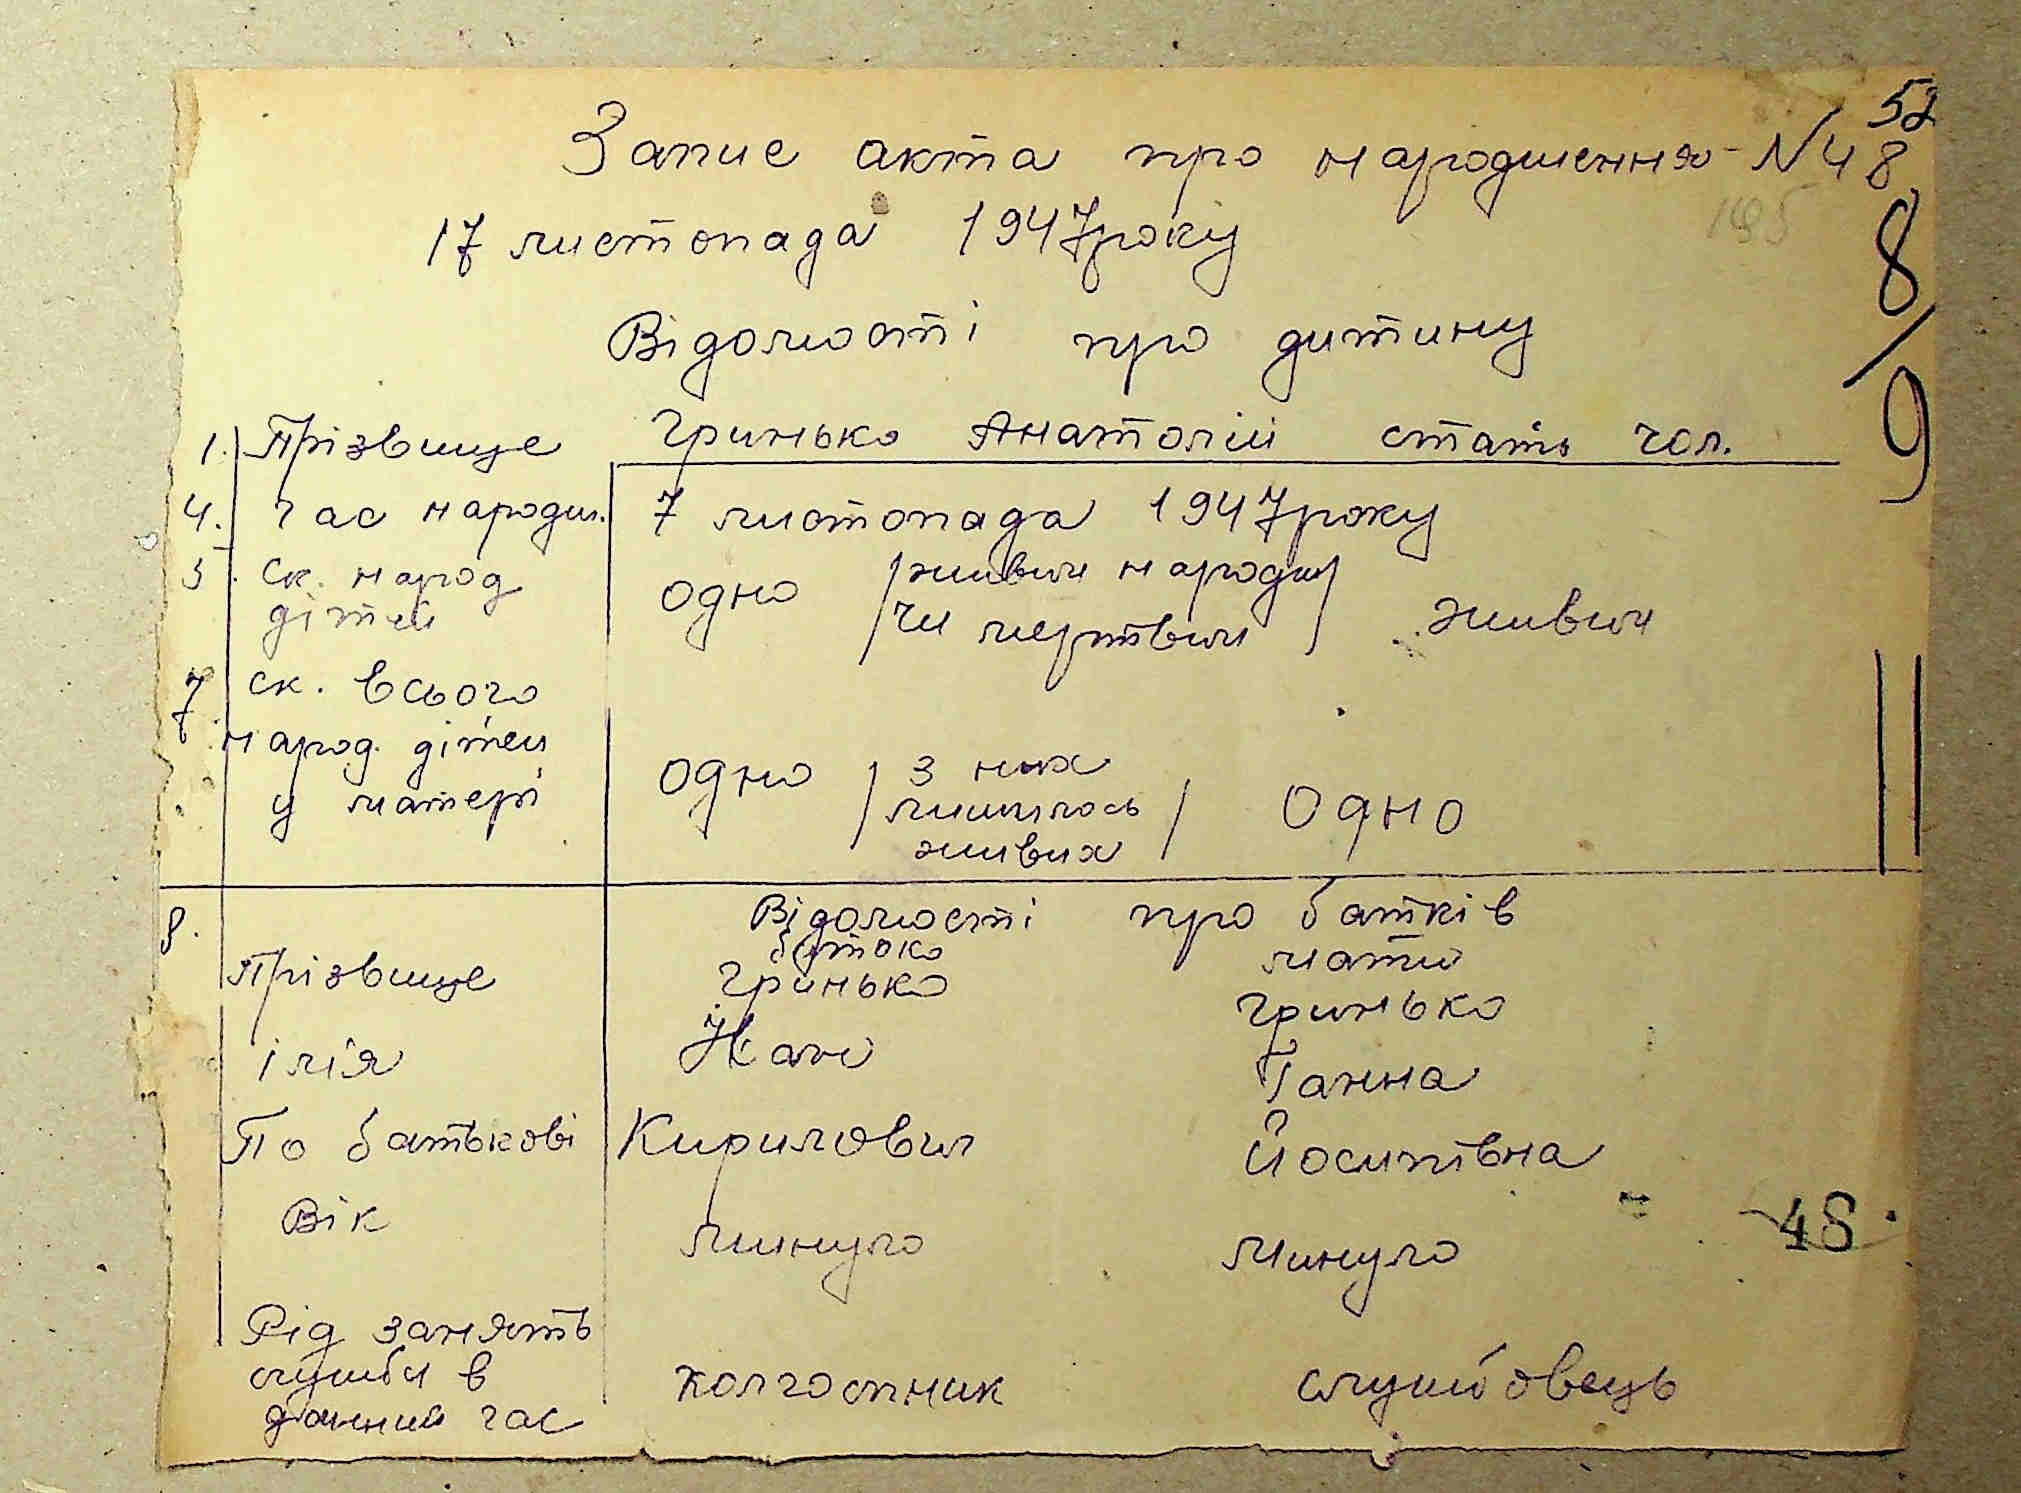 52
Запис акта про народження N 48
195
17 листопада 1947 року
8/9
Відомості про дитину
1. Прізвище Гринько Анатолій стать чол.
4. Час народж. 7 листопада 1947 року
5. ск. народ дітей одно /живим народж/ чи мертвим/ живим
7. ск. всього
народ. дітей
у матері одно / з них лишилось живих / Одно
8. Відомості про батків
батько мати
Прізвище Гринько Гринько
імія Ганна
По батькові Кирилович Йосипівна
Вік минуло минуло
48.
Рід занять
служби в
данний час колгоспник службовець